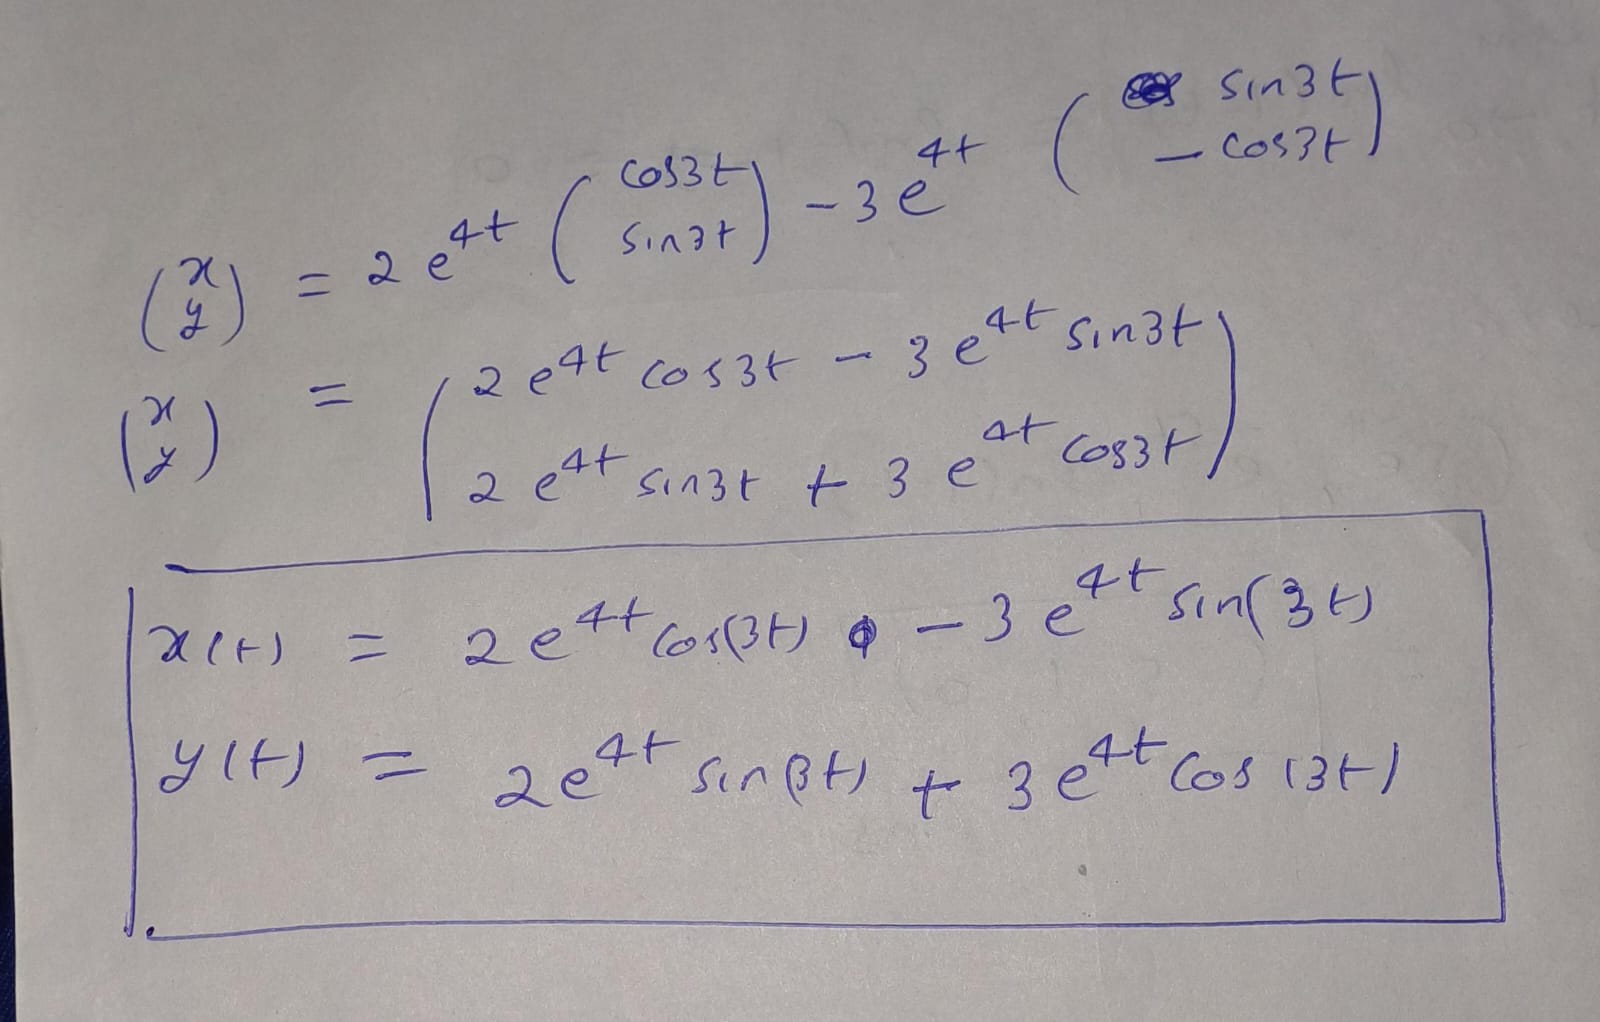 (x y) = 2 e^4t (cos3t sin3t) - 3 e^4t (sin3t - cos3t)
(x y) = (2 e^4t cos3t - 3 e^4t sin3t 2 e^4t sin3t + 3 e^4t cos3t)
x(t) = 2 e^4t cos(3t) - 3 e^4t sin(3t)
y(t) = 2e^4t sin(3t) + 3 e^4t cos(3t)